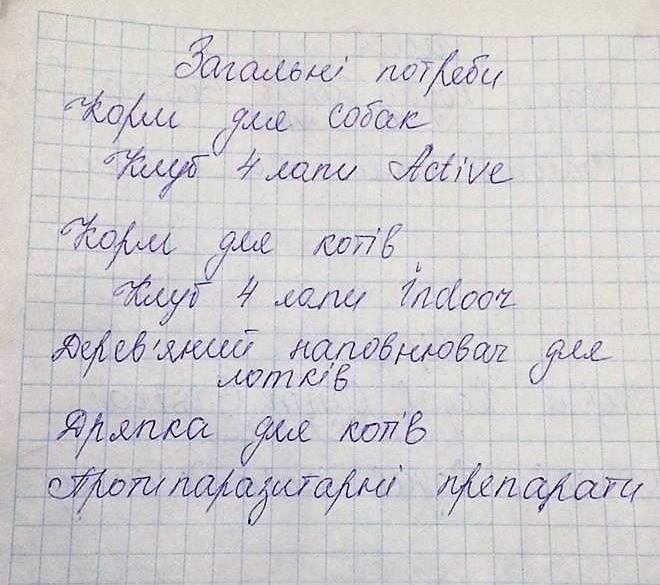 Загальні потреби
Корм для собак
Клуб 4 лапи Active
Корм для котів
Клуб 4 лапи indoor
Дерев'яний наповнювач для
лотків
Дряпка для котів
Протипаразитарні препарати